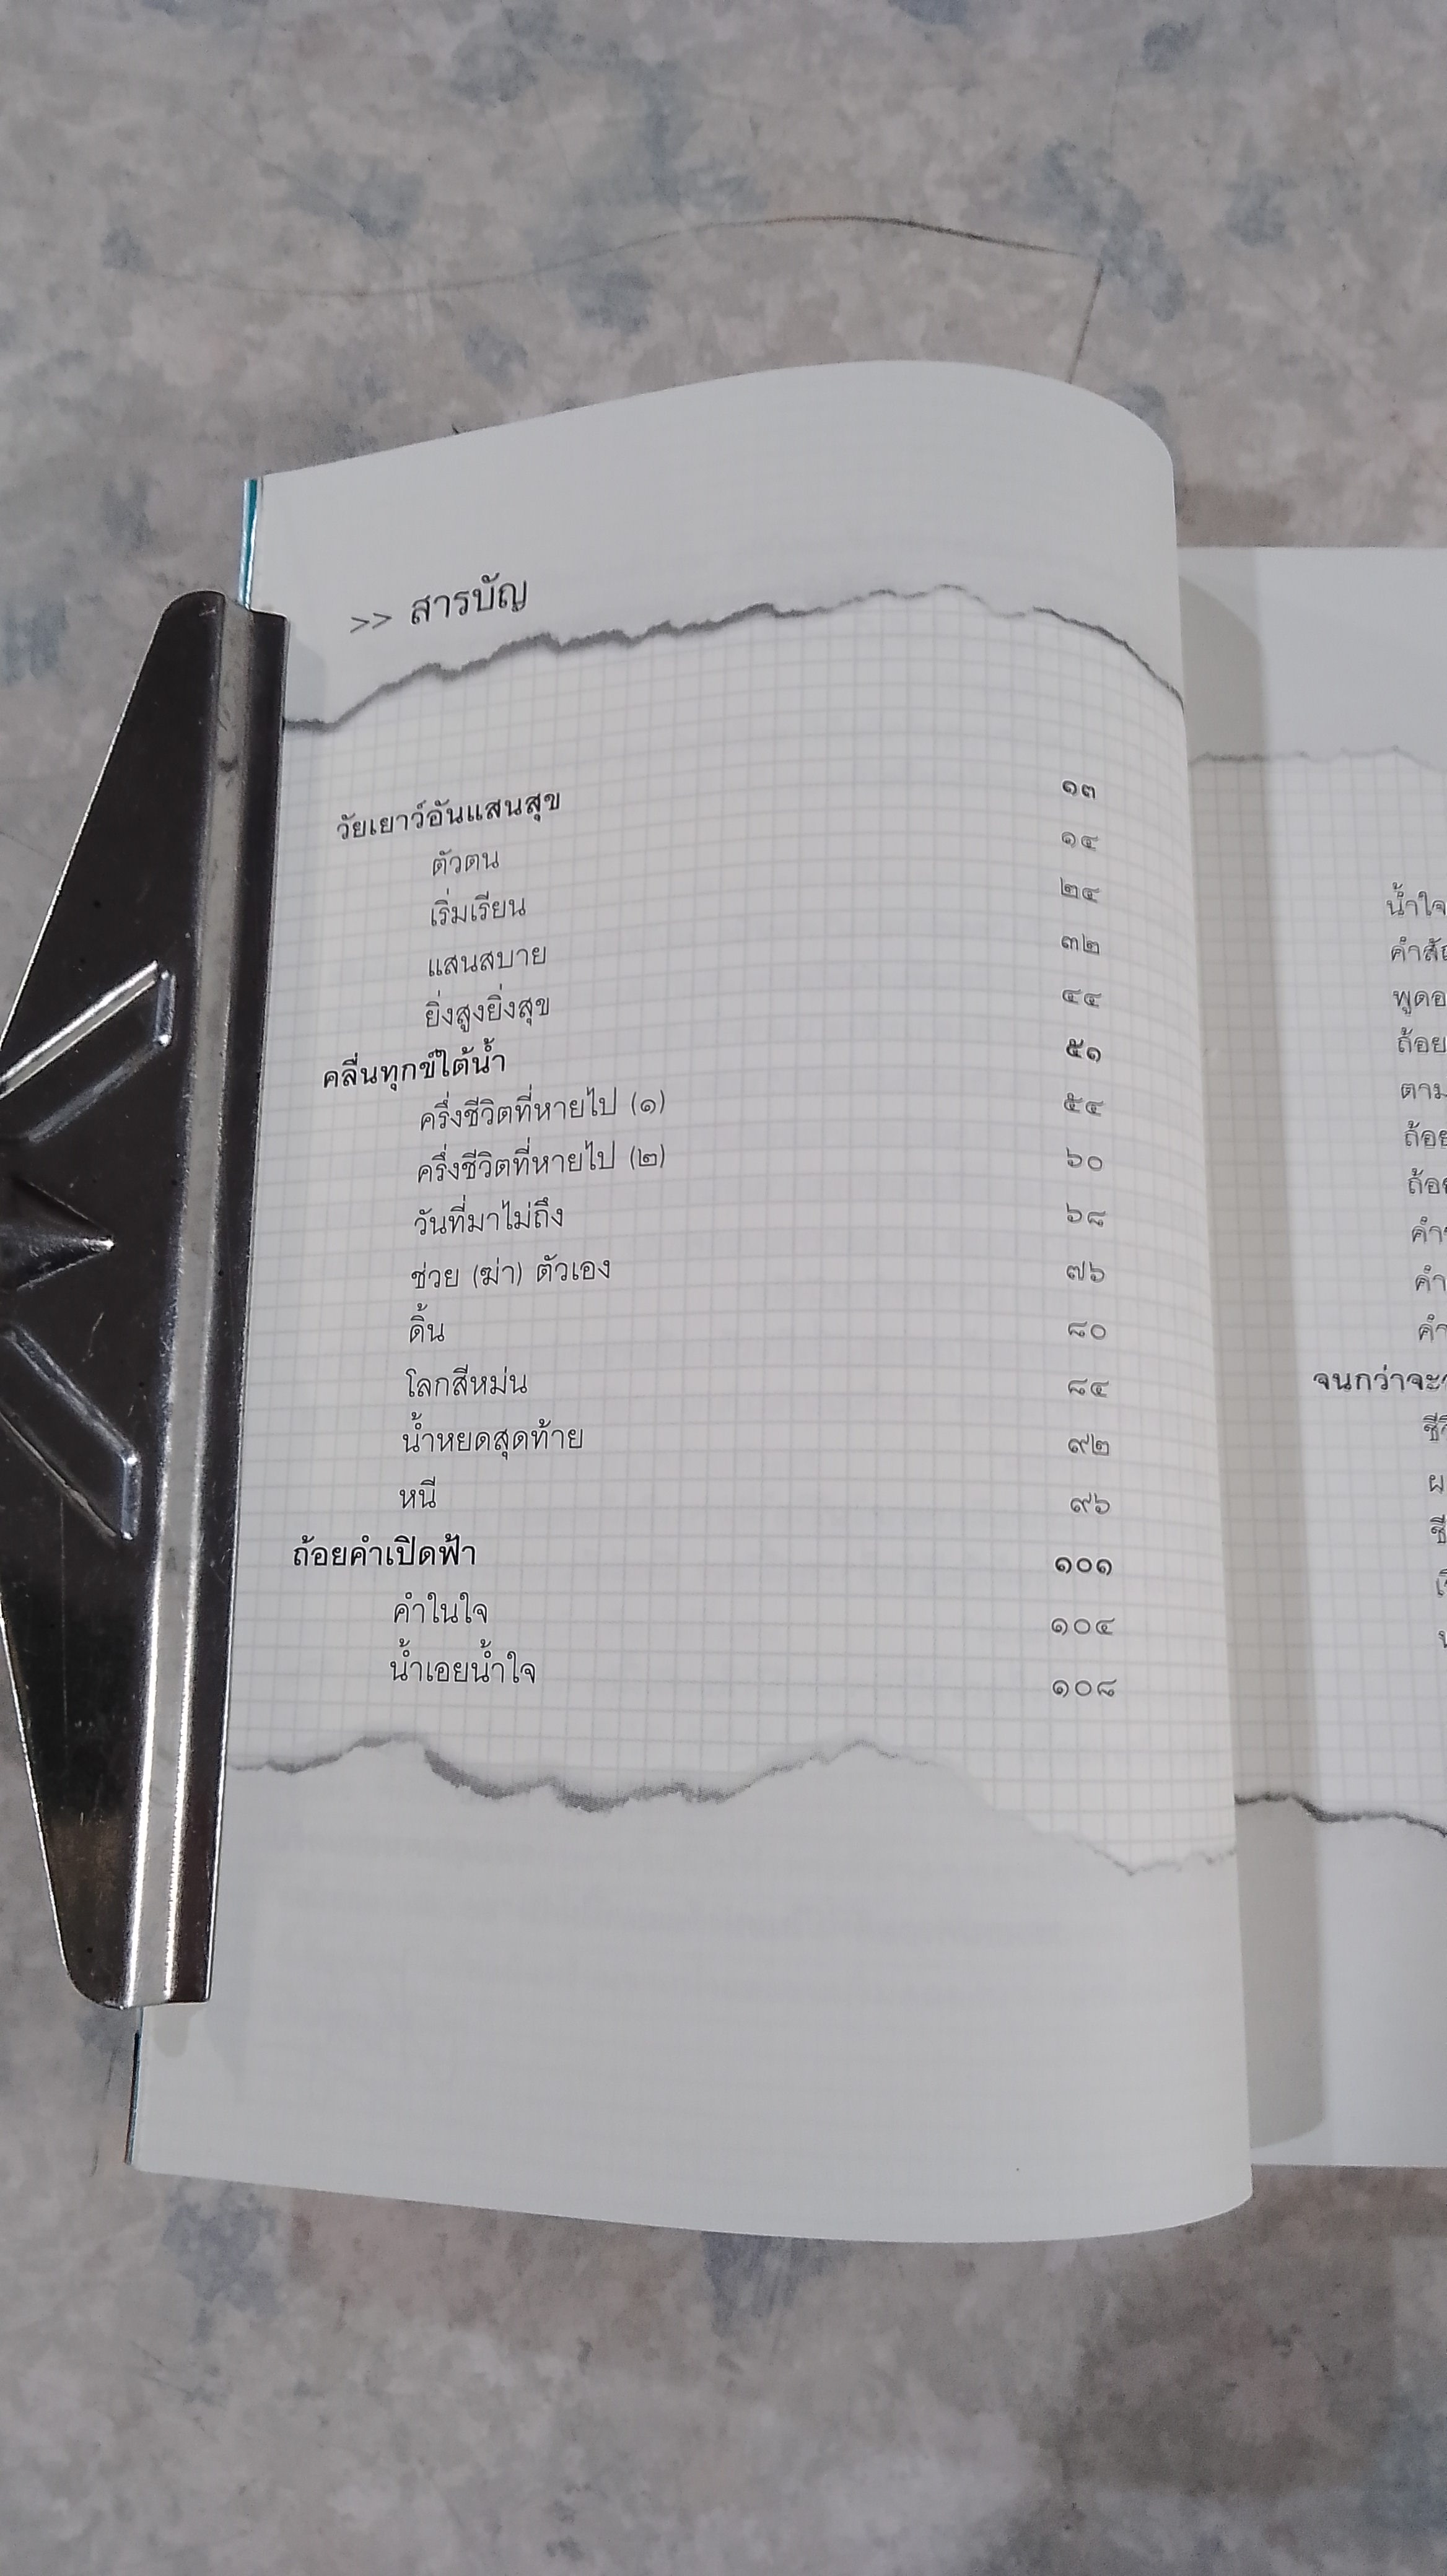 >> สารบัญ
วัยเยาว์อันแสนสุข ๑๓
ตัวตน ๑๔
เริ่มเรียน ๒๔
แสนสบาย ๓๒
ยิ่งสูงยิ่งสุข ๔๔
คลื่นทุกข์ใต้น้ำ ๕๑
ครึ่งชีวิตที่หายไป (๑) ๕๔
ครึ่งชีวิตที่หายไป (๒) ๖๐
วันที่มาไม่ถึง ๖๘
ช่วย (ฆ่า) ตัวเอง ๗๖
ดิ้น ๘๐
โลกสีหม่น ๘๔
น้ำหยดสุดท้าย ๙๒
หนี ๙๖
ถ้อยคำเปิดฟ้า ๑๐๑
คำในใจ ๑๐๔
น้ำเอยน้ำใจ ๑๐๘
น้ำใจ
พูดอ
ถ้อย
ตาม
คำ
จนกว่าจะ